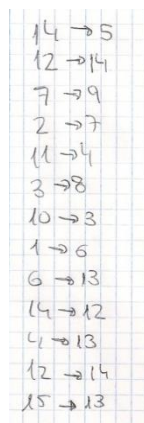 14 → 5
12 → 14
7 → 9
2 → 7
11 → 4
3 → 8
10 → 3
1 → 6
6 → 13
14 → 12
4 → 13
12 → 14
15 → 13